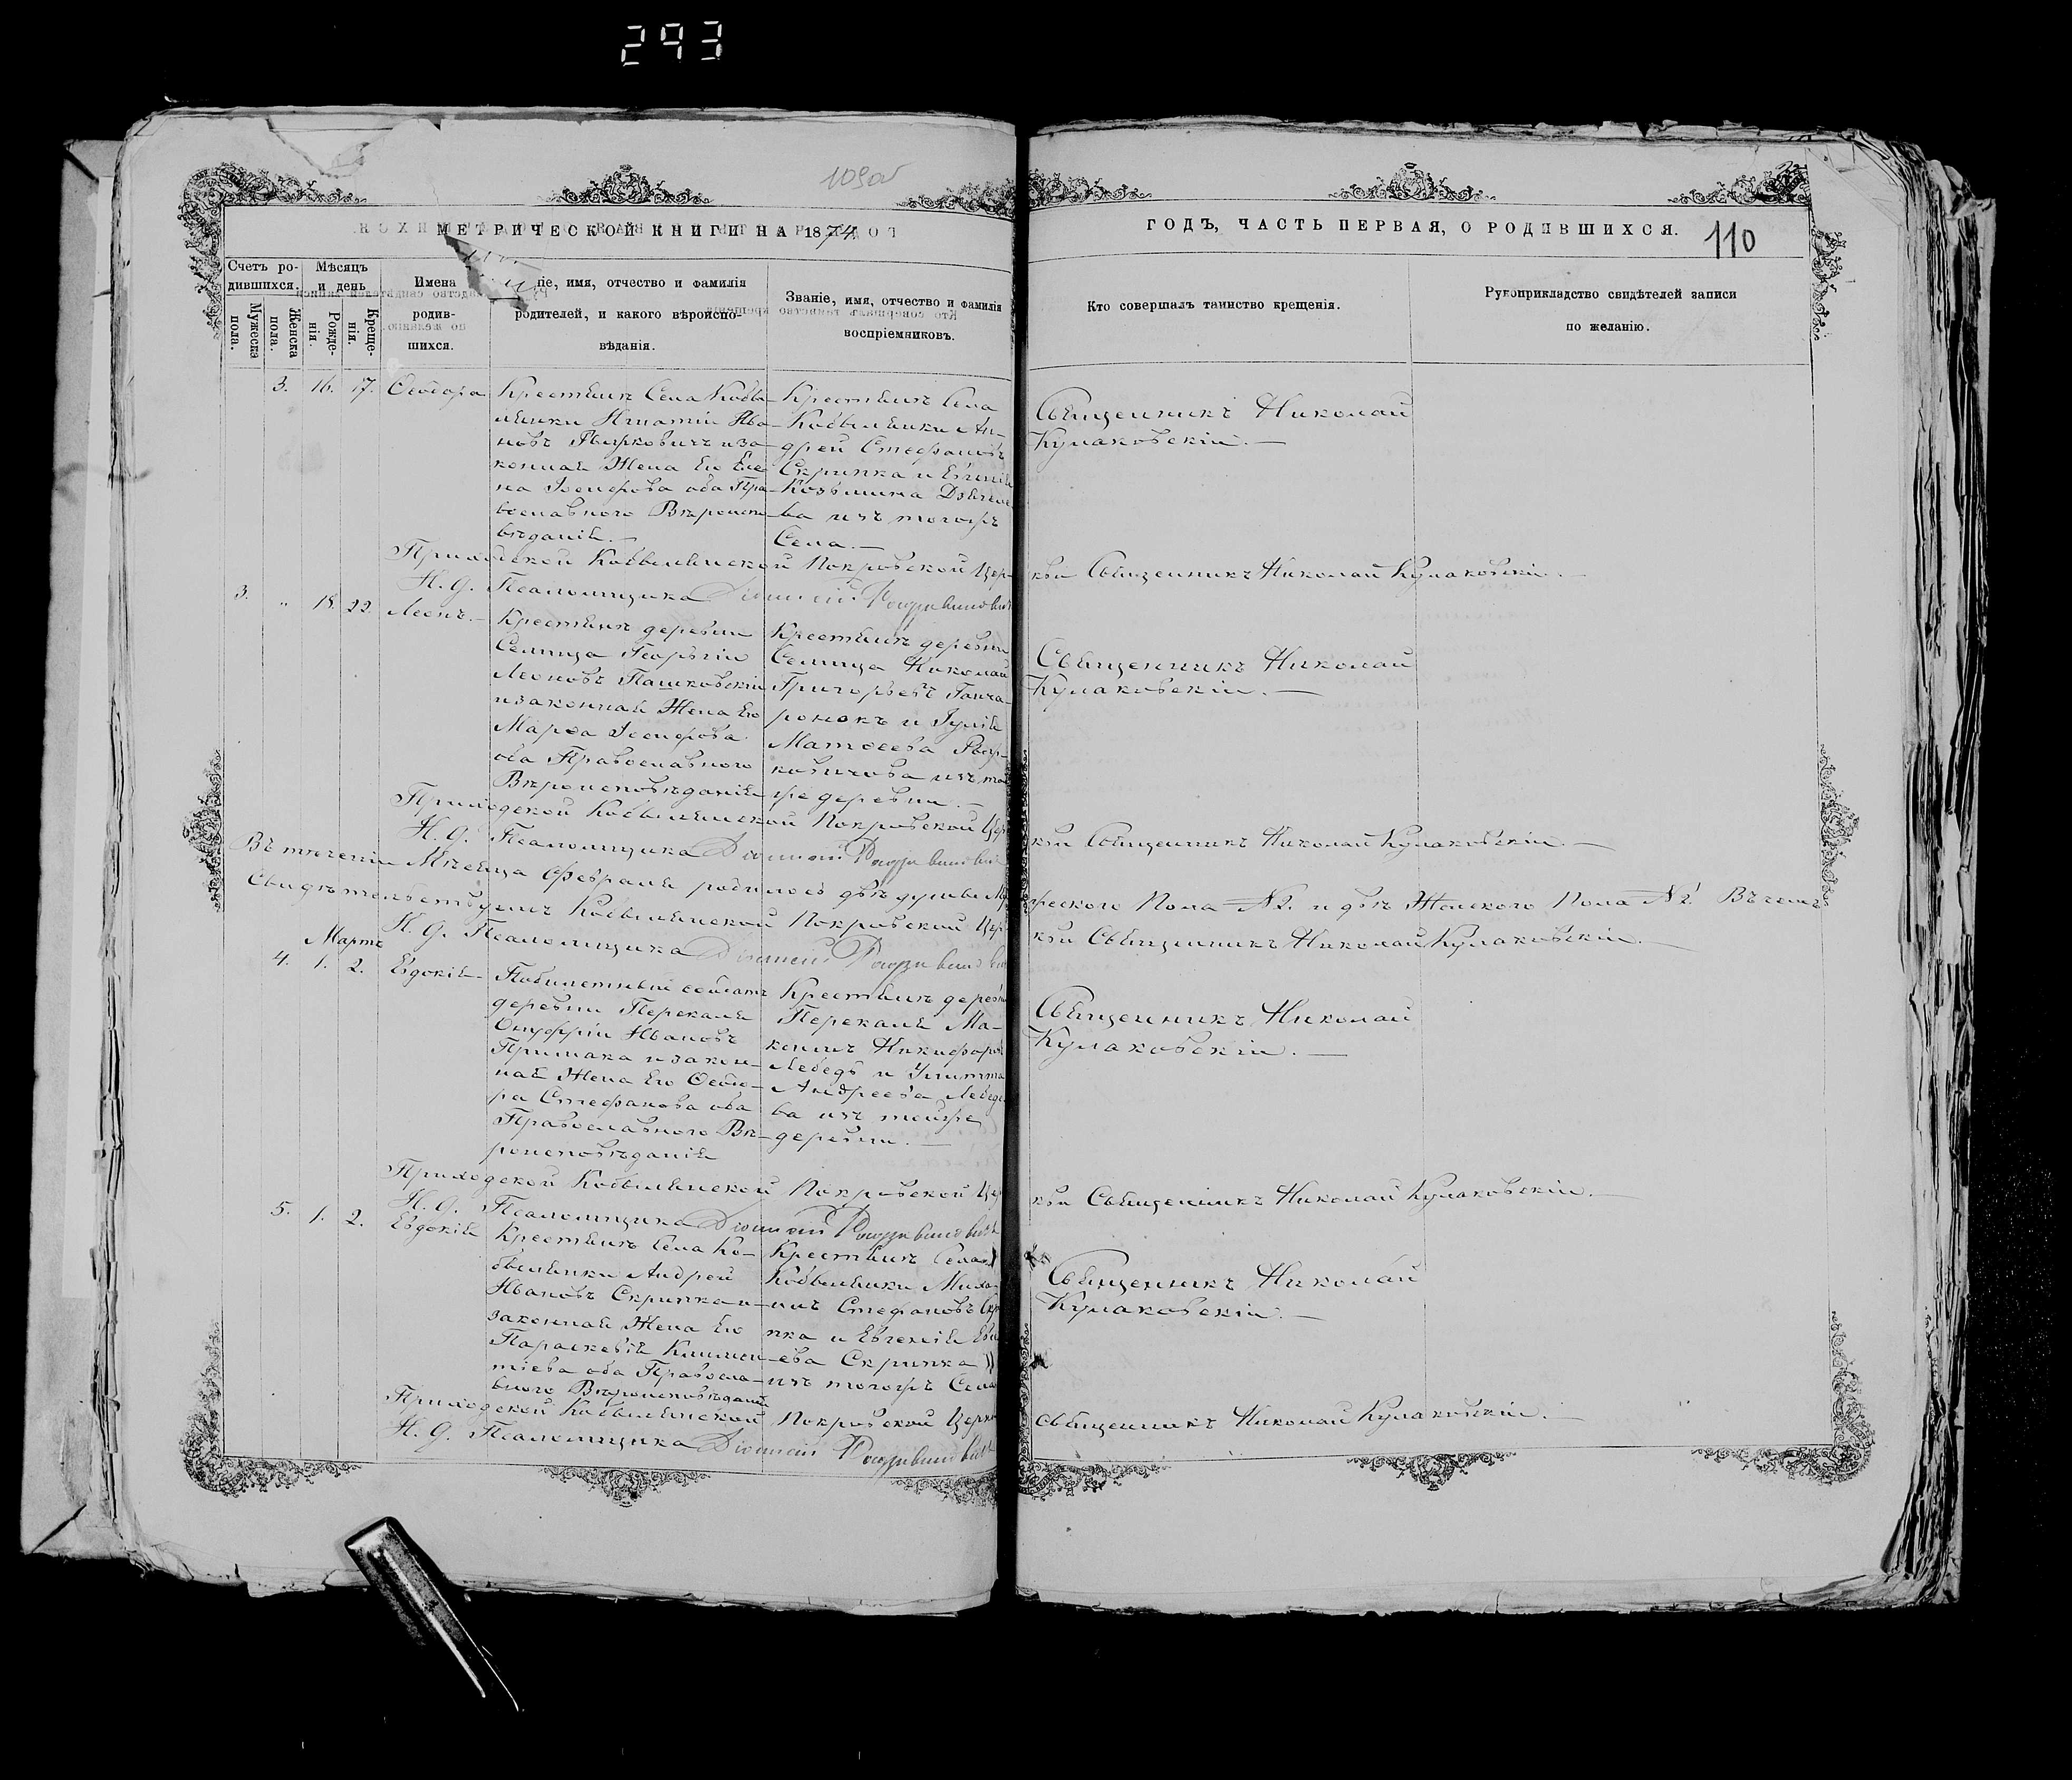 293
109об
МЕТРИЧЕСКОЙ КНИГИ НА 1874
ГОДЪ, ЧАСТЬ ПЕРВАЯ, О РОДИВШИХСЯ.
110
Счетъ ро-
дившихся.
Мужеска пола.
Женска пола.
Мѣсяцъ
и день
Рожде-
нія.
Креще-
нія.
Имена
родив-
шихся.
ніе, имя, отчество и фамилія
родителей, и какого вѣроиспо-
вѣданія.
Званіе, имя, отчество и фамилія
воспріемниковъ.
Кто совершалъ таинство крещенія.
Рукоприкладство свидѣтелей записи
по желанію.
3. 16. 17. Ѳеодора
Крестьянъ Села Кобы-
лянки Игнатій Ива-
новъ и за-
конная Жена Его Еле-
на Іосифова оба Пра-
вославного Вѣроиспо-
вѣданія.
Крестьянъ Села
Кобылянки Ан-
дрей Стефановъ
Скрипка и Евгенія
Козьмина
ва изъ тогожъ
Села.
Священникъ Николай
Кулаковскій.
Приходской Кобылянской Покровской Цер-
кви Священникъ Николай Кулаковскій.
И. д. Псаломщика Діонисій
3. " 18. 22. Леонъ.
Крестьянъ деревни
Селища Георгій
Леоновъ Пашковскій
и законная Жена Его
Марѳа Іосифова
оба Православного
Вѣроисповѣданія
Крестьянъ деревни
Селища Николай
Григорьевъ Ганча-
ронокъ и Іулія
Матѳеева
ковичова изъ той
же деревни.
Священникъ Николай
Кулаковскій.
Приходской Кобылянской Покровской Цер
кви Священникъ Николай Кулаковскій.
И. д. Псаломщика Діонисій
Въ теченіи Мѣсяца Февраля родилось двѣ души Му
жеского Пола №2. и двѣ Женского Пола №2 Въ чемъ
Свидѣтельствуемъ Кобылянской Покровской Цер
кви Священникъ Николай Кулаковскій.
И. д. Псаломщика Діонисій
Мартъ
4. 1. 2. Евдокія
деревни Перекаля
Онуфрій Ивановъ
Примака и закон-
ная Жена Его Ѳеодо-
ра Стефанова оба
Православного Вѣ-
роисповѣданія
Крестьянъ деревни
Перекаля Ма-
ксимъ Никифоровъ
Лебедь и Улита
Андреева Лебеде
ва изъ тойже
деревни.
Священникъ Николай
Кулаковскій.
Приходской Кобылянской Покровской Цер
кви Священникъ Николай Кулаковскій.
И. д. Псаломщика Діонисій
5. 1. 2. Евдокія
Крестьянъ Села Ко-
былянки Андрей
Ивановъ Скрипка и
законная Жена Его
Параскевія Климен-
тіева оба Правосла-
вного Вѣроисповѣданія
Крестьянъ Села
Кобылянки Миха-
илъ Стефановъ Скри
пка и Евгенія
ева Скрипка
изъ тогожъ Села
Священникъ Николай
Кулаковскій.
Приходской Кобылянской Покровской Церкви
Священникъ Николай Кулаковскій.
И. д. Псаломщика Діонисій